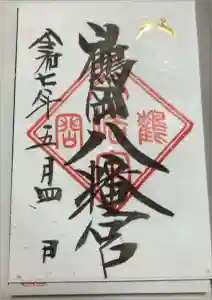 鶴岡八幡宮
令和七年五月四日